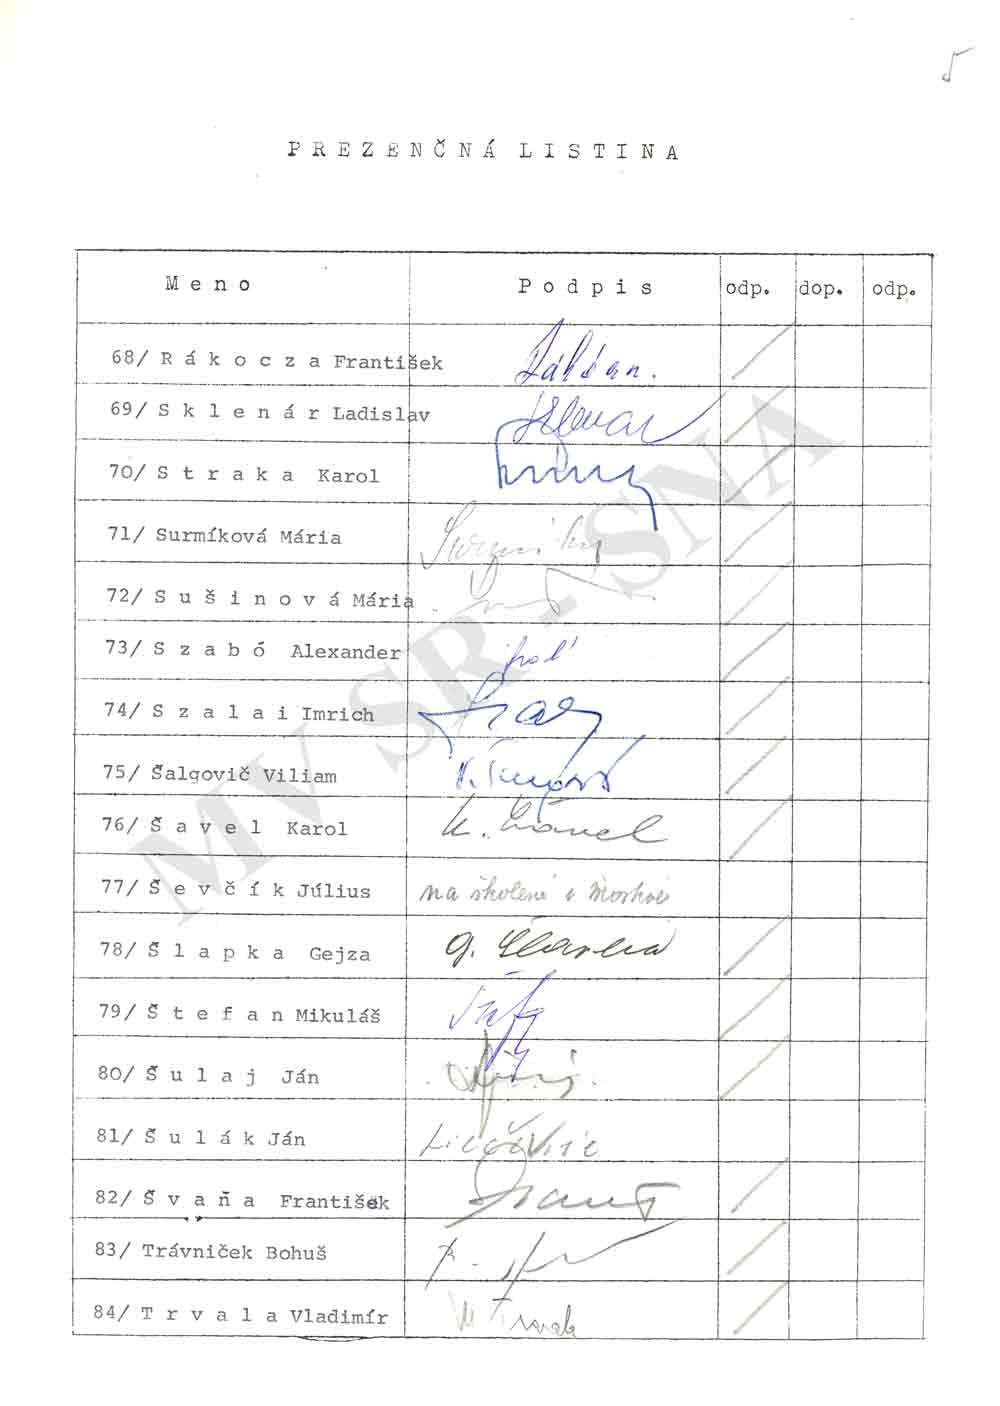 5
PREZENČNÁ LISTINA
Meno Podpis odp. dop. odp.
68/ Rákocza František
69/ Sklenár Ladislav
70/ Straka Karol
71/ Surmíková Mária
72/ Sušinová Mária
73/ Szabó Alexander
74/ Szalai Imrich
75/ Šalgovič Viliam
76/ Šavel Karol K. Šavel
77/ Ševčík Július na školení v Moskve
78/ Šlapka Gejza G. Šlapka
79/ Štefan Mikuláš
80/ Šulaj Ján
81/ Šulák Ján
82/ Švaňa František
83/ Trávniček Bohuš
84/ Trvala Vladimír
MV SR - SNA